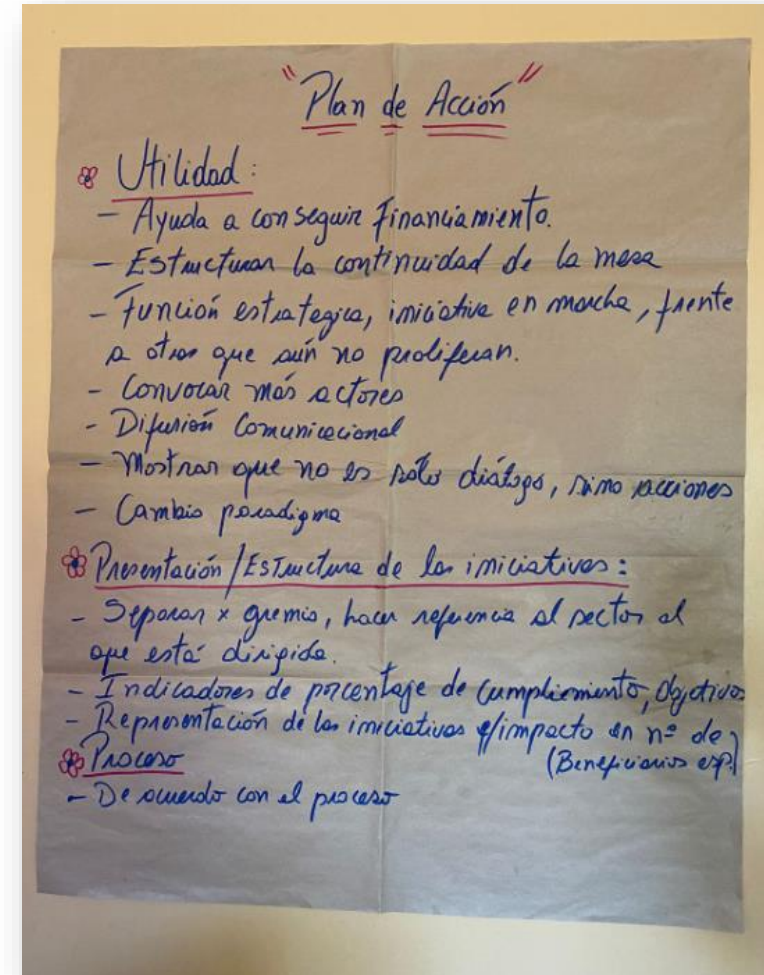 "Plan de Acción"
Utilidad:
- Ayuda a conseguir Financiamiento.
- Estructurar la continuidad de la mesa
- Función estrategica, iniciativa en marcha, frente
a otras que aún no proliferan.
- Convocar más actores
- Difusión Comunicacional
- Mostrar que no es sólo diálogo, sino acciones
- Cambio paradigma
Presentación/Estructura de las iniciativas:
- Separar x gremio, hacer referencia al sector al
que está dirigida.
- Indicadores de porcentaje de cumplimiento, Objetivos
- Representación de las iniciativas impacto en nº de
(Beneficiarios esp.)
Proceso
- De acuerdo con el proceso